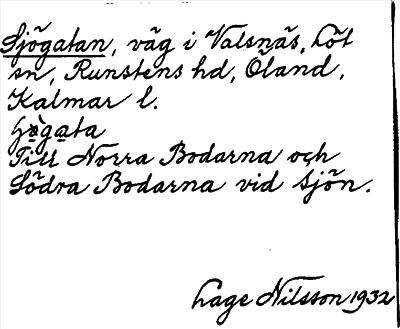 Sjögatan, väg i Valsnäs, Löt
sn, Runstens hd, Öland,
Kalmar l.
Till Norra Bodarna och
Södra Bodarna vid sjön.
Lage Nilsson 1932